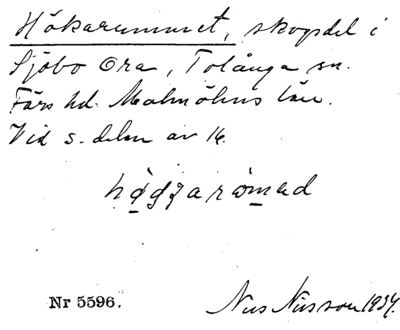 Hökarummet, skogsdel i
Sjöbo Ora, Tolånga sn.
Färs hd. Malmöhus län.
Vid s. delen av 16.
Nr 5596.
Nils Nilsson 1934.